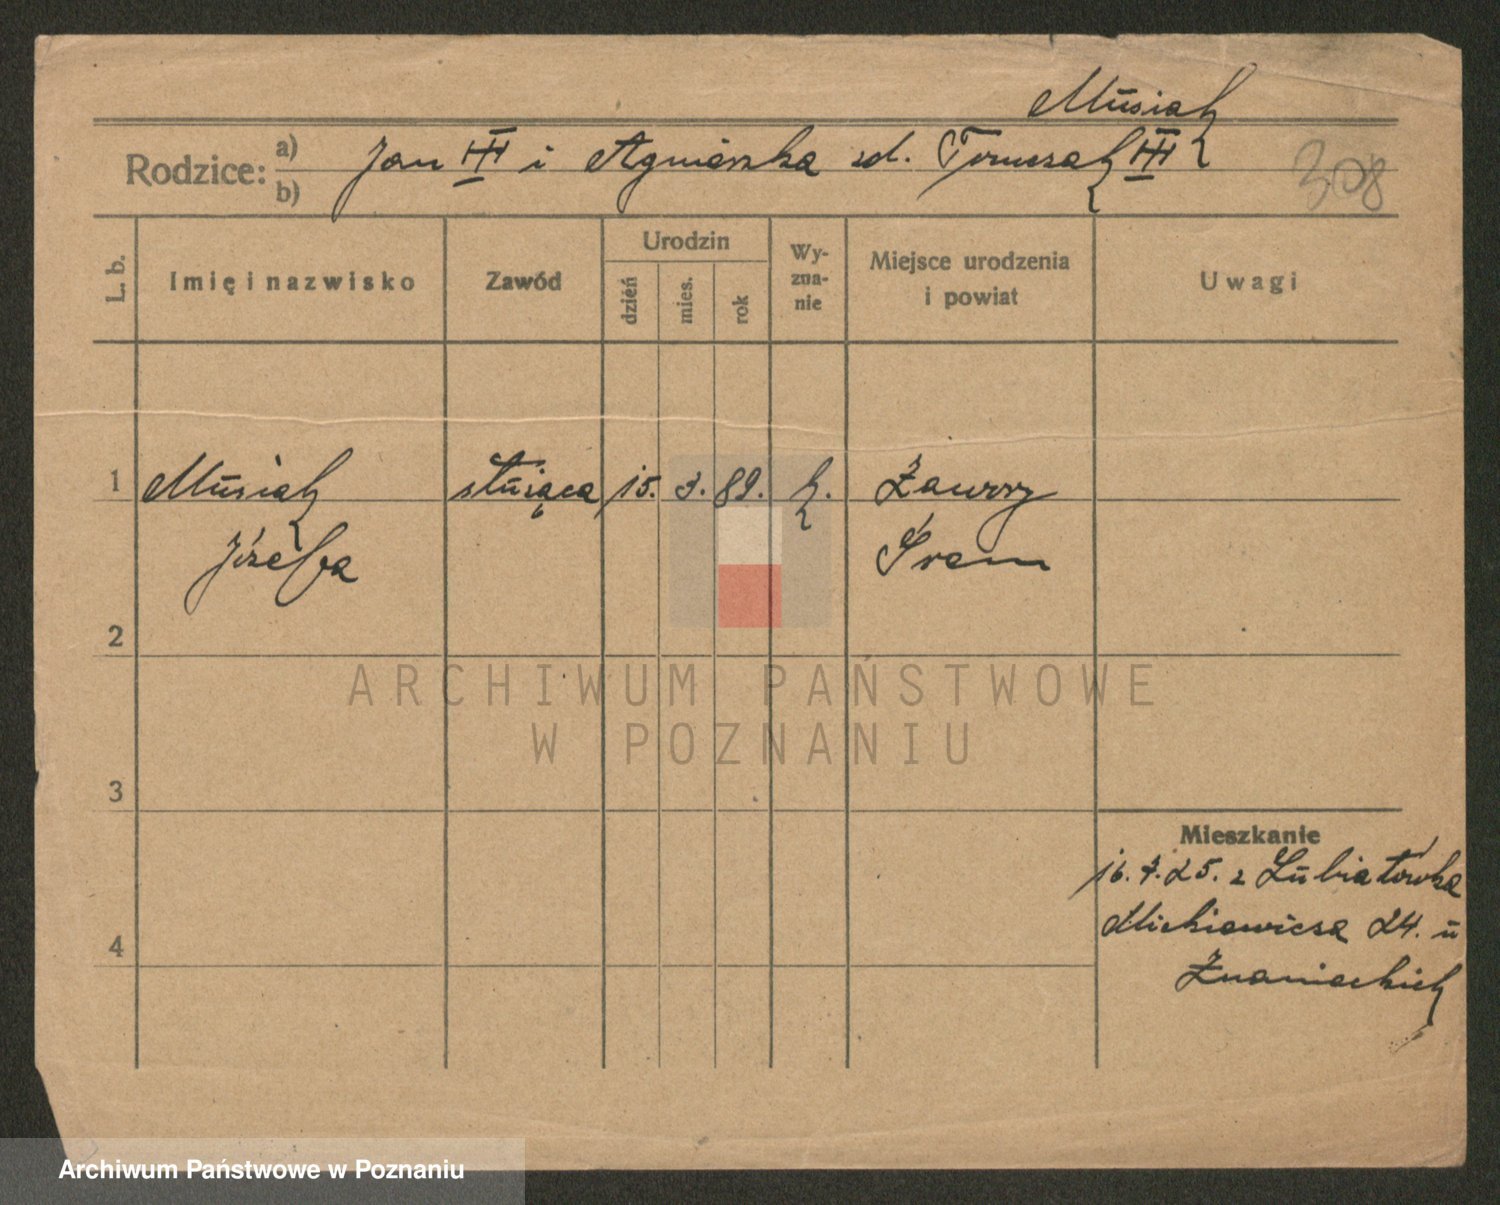 Musiał
Rodzice: a) b) Jan i Agnieszka zd. Tomczak
308
L. b.
Imię i nazwisko
Zawód
Urodzin
dzień
mies.
rok
Wy-
zna-
nie
Miejsce urodzenia
i powiat
Uwagi
1 Musiał służąca 15. 3. 89. k. Zawory
Józefa Śrem
2
3
4
Mieszkanie
16. 7. 25. z Lubiatówka
Mickiewicza 24. u
Znanieckich
ARCHIWUM PAŃSTWOWE
W POZNANIU
Archiwum Państwowe w Poznaniu